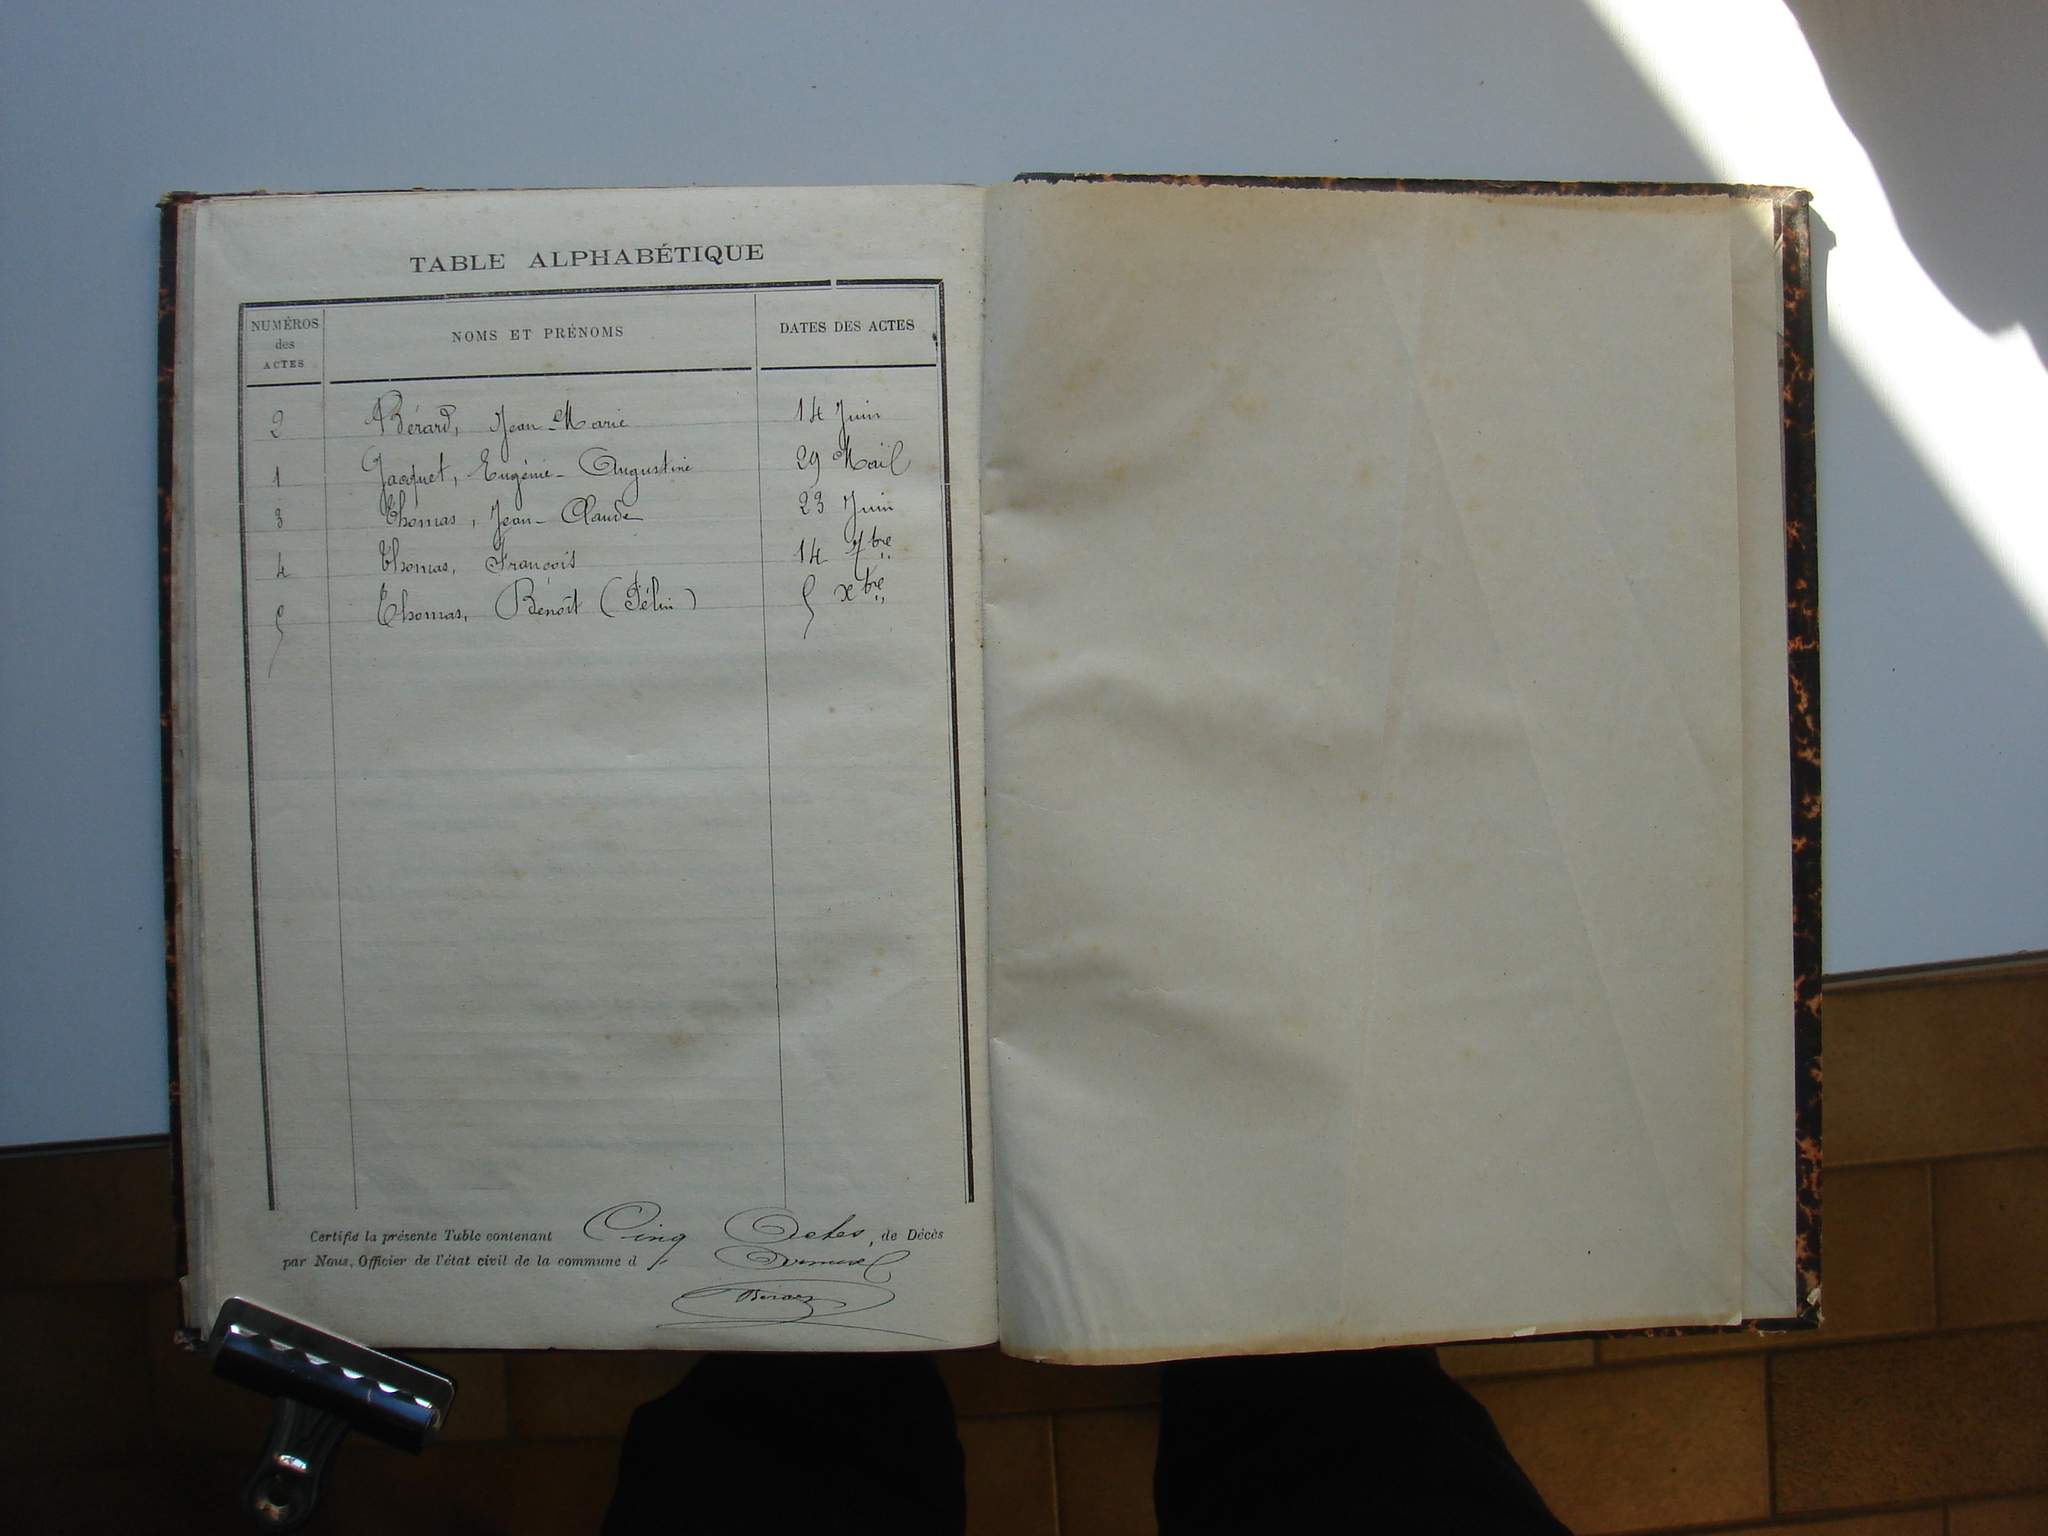 TABLE ALPHABÉTIQUE
NUMÉROS des ACTES NOMS ET PRÉNOMS DATES DES ACTES
2 Bérard, Jean-Marie 14 Juin
1 Jacquet, Eugénie-Augustine 29 Mail
3 Thomas, Jean-Claude 23 Juin
4 Thomas, François 14 7bre
5 Thomas, Benoît (Félin) 5 xbre
Certifié la présente Table contenant Cinq Actes, de Décès
par Nous, Officier de l'état civil de la commune d